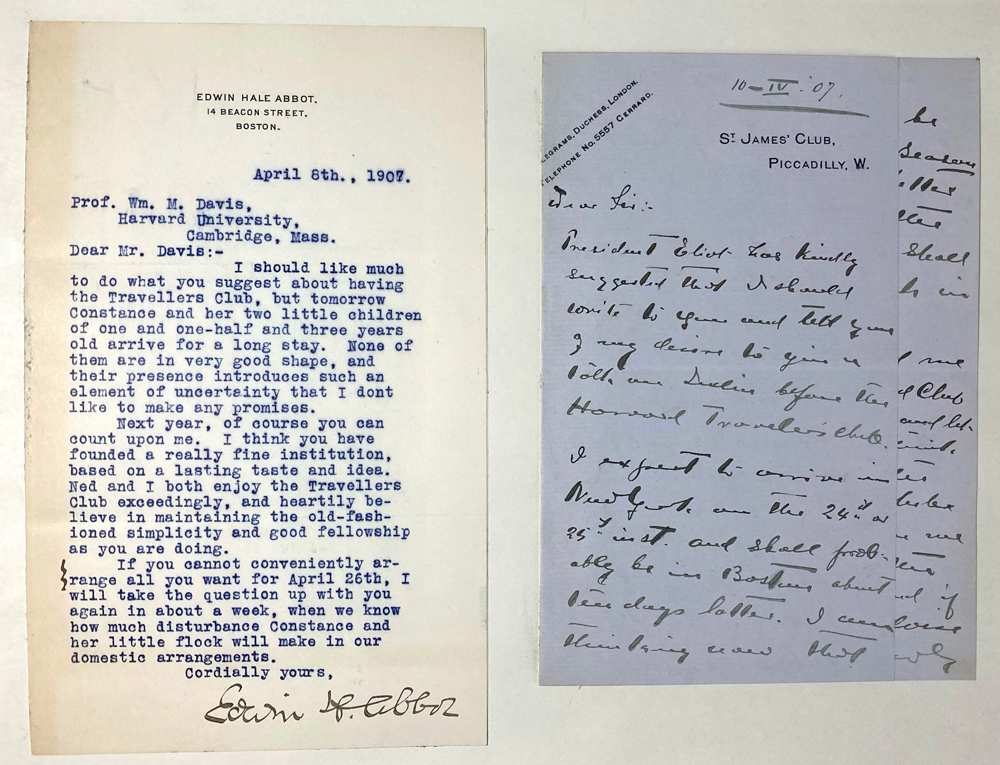 EDWIN HALE ABBOT,
14 BEACON STREET,
BOSTON.
April 8th., 1907.
Prof. Wm. M. Davis,
Harvard University,
Cambridge, Mass.
Dear Mr. Davis:-
I should like much
to do what you suggest about having
the Travellers Club, but tomorrow
Constance and her two little children
of one and one-half and three years
old arrive for a long stay. None of
them are in very good shape, and
their presence introduces such an
element of uncertainty that I dont
like to make any promises.
Next year, of course you can
count upon me. I think you have
founded a really fine institution,
based on a lasting taste and idea.
Ned and I both enjoy the Travellers
Club exceedingly, and heartily be-
lieve in maintaining the old-fash-
ioned simplicity and good fellowship
as you are doing.
If you cannot conveniently ar-
range all you want for April 26th, I
will take the question up with you
again in about a week, when we know
how much disturbance Constance and
her little flock will make in our
domestic arrangements.
Cordially yours,
Edwin H. Abbot
LEGRAMS, DUCHESS, LONDON.
TELEPHONE NO. 5557 GERRARD.
10-IV.'07.
ST JAMES' CLUB,
PICCADILLY, W.
Dear Sir:-
President Eliot has kindly
suggested that I should
write to you and tell you
of my desire to give a
talk on before the
Harvard Travellers Club.
I expect to arrive in
New York on the 24th or
25th inst. and shall prob-
ably be in Boston about
ten days later. I am
thinking now that
be
season
the
shall
in
me
Club
and let-
me
if